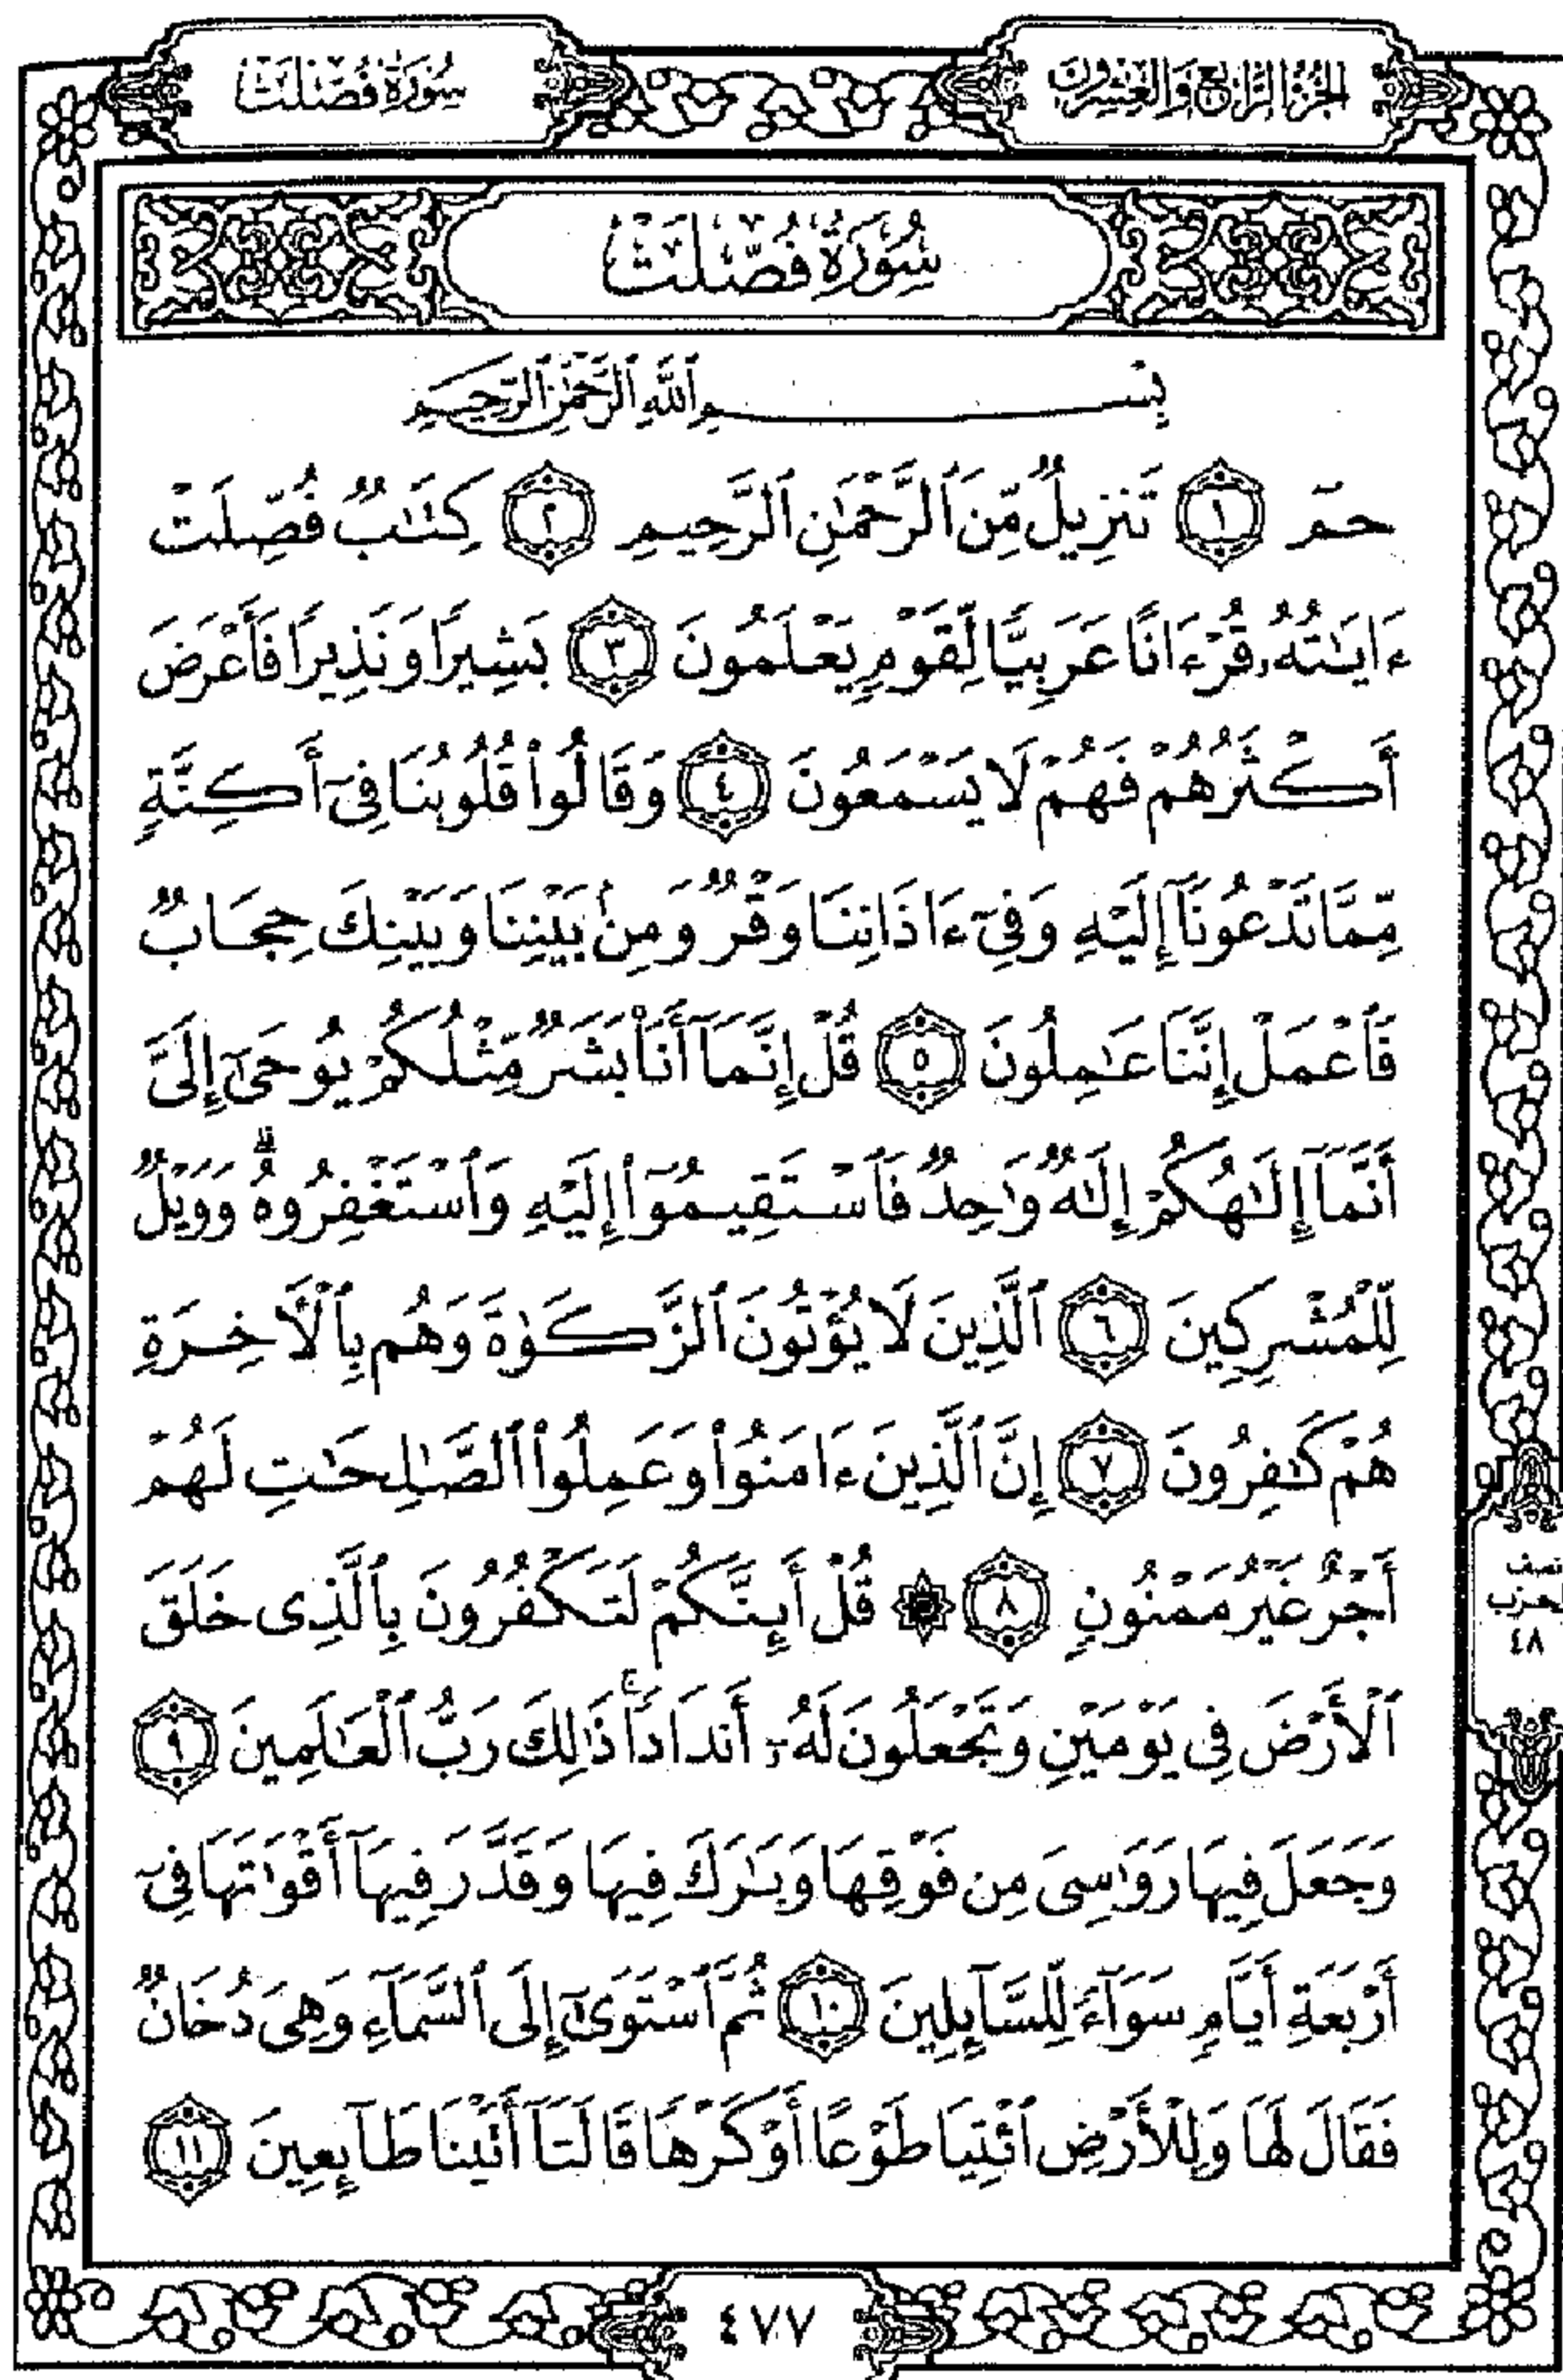 الجزء الرابع والعشرون
سورة فصلت
سُورَةُ فُصِّلَتْ
بِسْمِ ٱللَّهِ ٱلرَّحْمَٰنِ ٱلرَّحِيمِ
حمٓ ١ تَنزِيلٌ مِّنَ ٱلرَّحْمَٰنِ ٱلرَّحِيمِ ٢ كِتَٰبٌ فُصِّلَتْ
ءَايَٰتُهُۥ قُرْءَانًا عَرَبِيًّا لِّقَوْمٍ يَعْلَمُونَ ٣ بَشِيرًا وَنَذِيرًا فَأَعْرَضَ
أَكْثَرُهُمْ فَهُمْ لَا يَسْمَعُونَ ٤ وَقَالُوا۟ قُلُوبُنَا فِىٓ أَكِنَّةٍ
مِّمَّا تَدْعُونَآ إِلَيْهِ وَفِىٓ ءَاذَانِنَا وَقْرٌ وَمِنۢ بَيْنِنَا وَبَيْنِكَ حِجَابٌ
فَٱعْمَلْ إِنَّنَا عَٰمِلُونَ ٥ قُلْ إِنَّمَآ أَنَا۠ بَشَرٌ مِّثْلُكُمْ يُوحَىٰٓ إِلَىَّ
أَنَّمَآ إِلَٰهُكُمْ إِلَٰهٌ وَٰحِدٌ فَٱسْتَقِيمُوٓا۟ إِلَيْهِ وَٱسْتَغْفِرُوهُ ۗ وَوَيْلٌ
لِّلْمُشْرِكِينَ ٦ ٱلَّذِينَ لَا يُؤْتُونَ ٱلزَّكَوٰةَ وَهُم بِٱلْأَخِرَةِ
هُمْ كَٰفِرُونَ ٧ إِنَّ ٱلَّذِينَ ءَامَنُوا۟ وَعَمِلُوا۟ ٱلصَّٰلِحَٰتِ لَهُمْ
أَجْرٌ غَيْرُ مَمْنُونٍ ٨ ۞ قُلْ أَئِنَّكُمْ لَتَكْفُرُونَ بِٱلَّذِى خَلَقَ
ٱلْأَرْضَ فِى يَوْمَيْنِ وَتَجْعَلُونَ لَهُۥٓ أَندَادًا ۚ ذَٰلِكَ رَبُّ ٱلْعَٰلَمِينَ ٩
وَجَعَلَ فِيهَا رَوَٰسِىَ مِن فَوْقِهَا وَبَٰرَكَ فِيهَا وَقَدَّرَ فِيهَآ أَقْوَٰتَهَا فِىٓ
أَرْبَعَةِ أَيَّامٍ سَوَآءً لِّلسَّآئِلِينَ ١٠ ثُمَّ ٱسْتَوَىٰٓ إِلَى ٱلسَّمَآءِ وَهِىَ دُخَانٌ
فَقَالَ لَهَا وَلِلْأَرْضِ ٱئْتِيَا طَوْعًا أَوْ كَرْهًا قَالَتَآ أَتَيْنَا طَآئِعِينَ ١١
نصف
الحزب
٤٨
٤٧٧